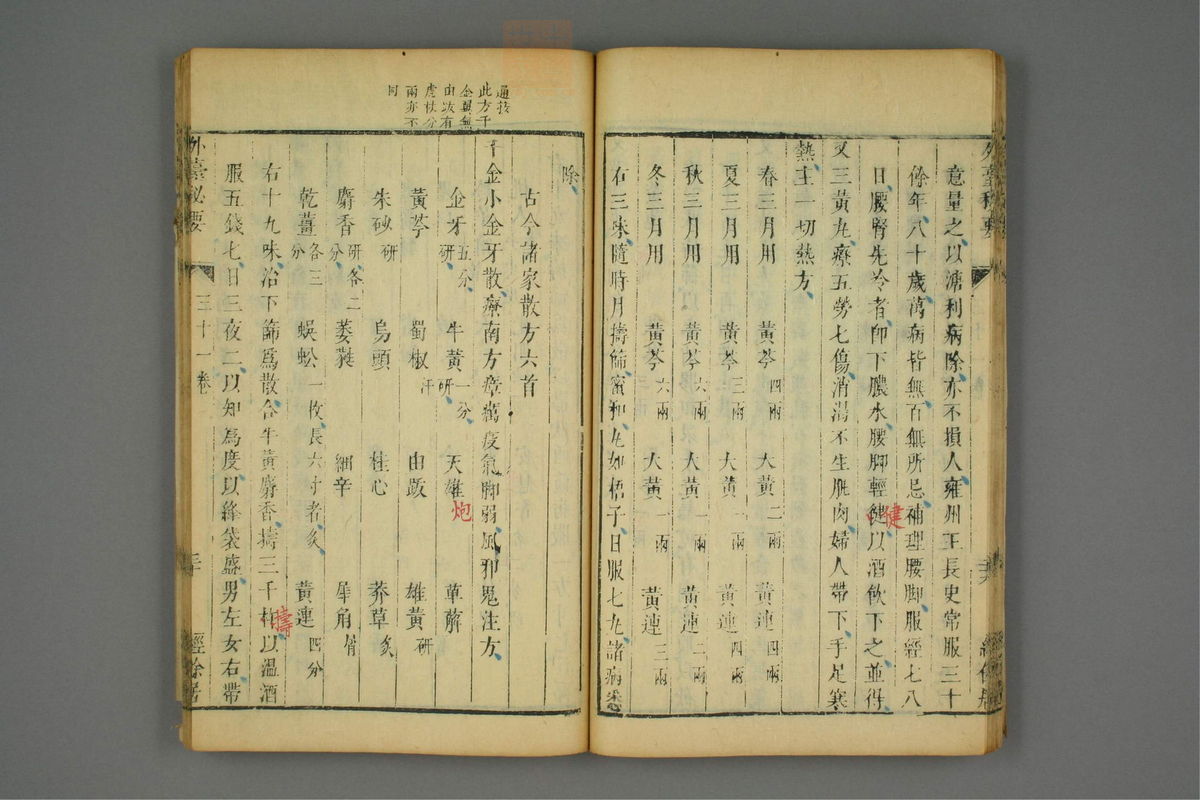 外臺秘要
意量之以溏利病除亦不損人雍州王長史常服三十
餘年八十歲萬病皆無百無所忌補理腰脚服經七八
日腰腎先冷者即下膿水腰脚輕健以酒飲下之並得
健
又三黃丸療五勞七傷消渴不生肌肉婦人帶下手足寒
熱主一切熱方
春三月用 黃芩四兩 大黃二兩 黃連四兩
夏三月用 黃芩三兩 大黃一兩 黃連四兩
秋三月用 黃芩六兩 大黃一兩 黃連二兩
冬三月用 黃芩六兩 大黃一兩 黃連三兩
右三味隨時月擣篩蜜和丸如梧子日服七丸諸病悉
除
古今諸家散方六首
千金小金牙散療南方瘴癘疫氣脚弱風邪鬼注方
金牙五分研 牛黃一分研 天雄 萆薢
炮
黃芩 蜀椒汗 由跋 雄黃研
朱砂研 烏頭 桂心 莽草炙
麝香研各二分 萎蕤 細辛 犀角屑
乾薑各三分 蜈蚣一枚長六寸者炙 黃連四分
右十九味治下篩為散合牛黃麝香擣三千杵以溫酒
擣
服五錢匕日三夜二以知為度以絳袋盛男左女右帶
外臺秘要 三十一卷 經餘居
此方千
金翼無
由跋有
虎杖分
兩亦不
同